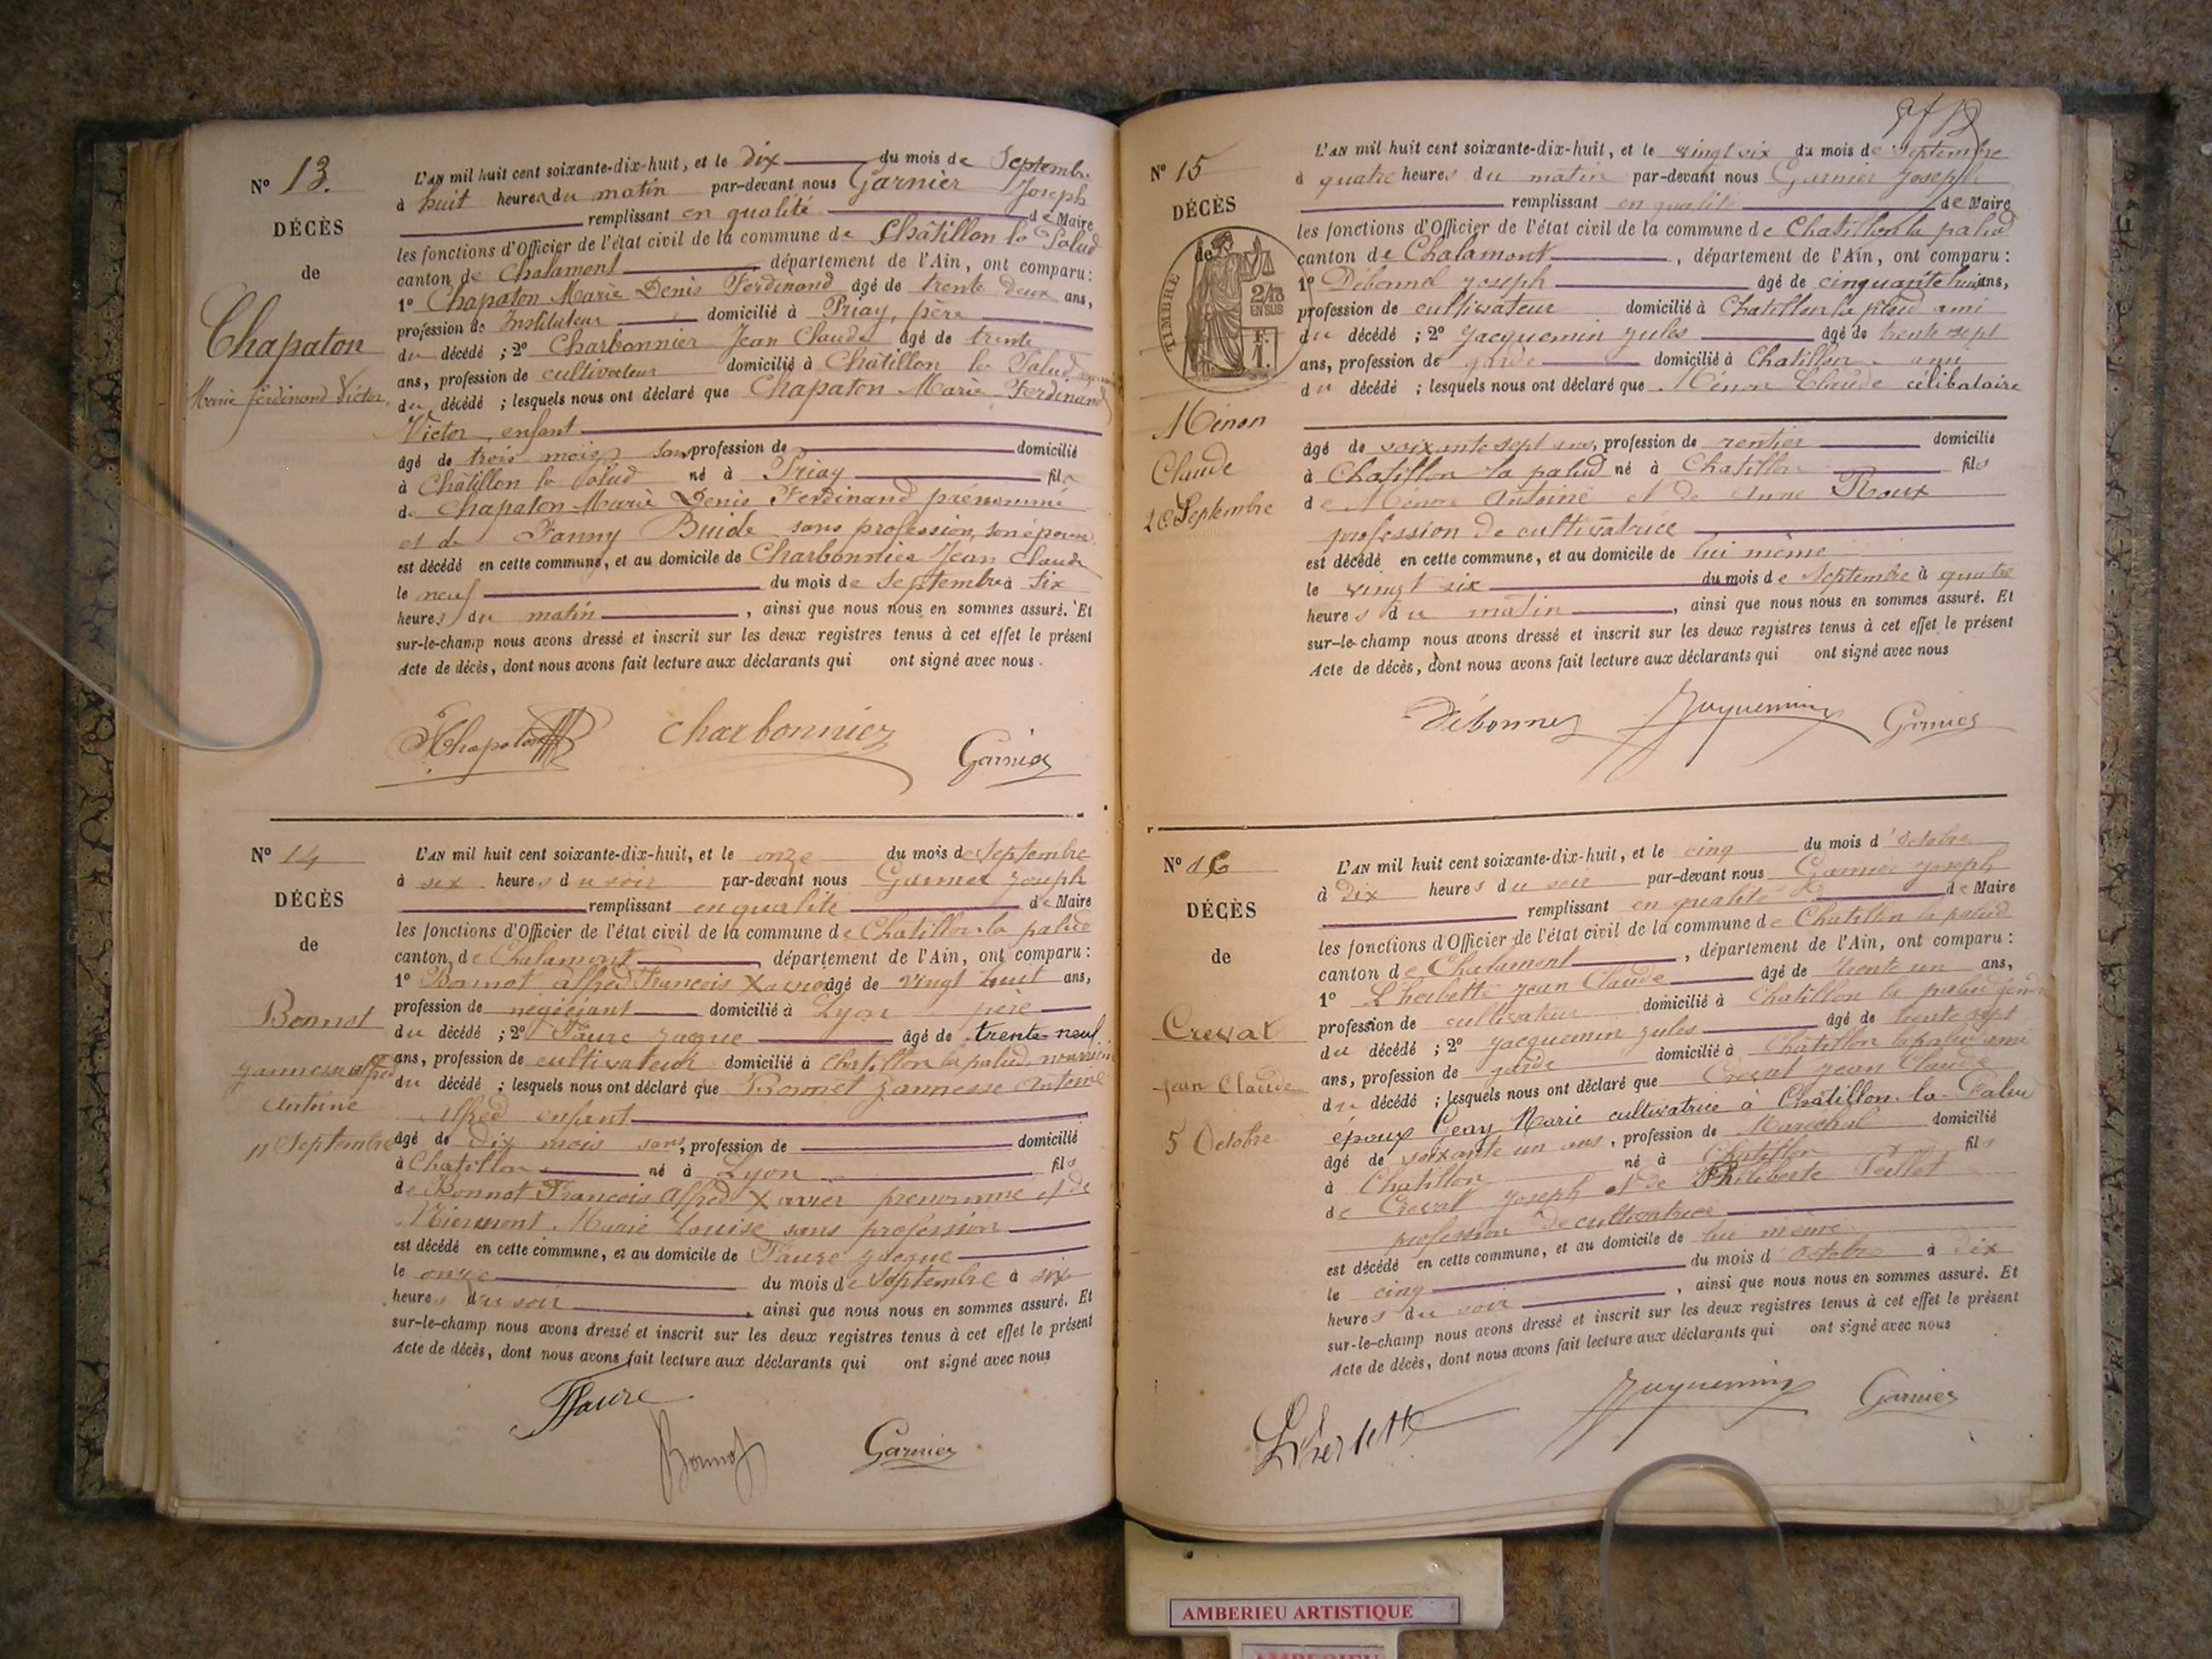 Nº 13.
DÉCÈS
de
Chapaton
Marie ferdinand Victor
L'AN mil huit cent soixante-dix-huit, et le dix du mois de Septembre
à huit heures du matin par-devant nous Garnier Joseph
remplissant en qualité de Maire
les fonctions d'Officier de l'état civil de la commune de Châtillon la Palud
canton de Chalamont département de l'Ain, ont comparu :
1º Chapaton Marie Denis Ferdinand âgé de trente deux ans,
profession de Instituteur domicilié à Priay, père
du décédé ; 2º Charbonnier Jean Claude âgé de trente
ans, profession de cultivateur domicilié à Châtillon la Palud
du décédé ; lesquels nous ont déclaré que Chapaton Marie Ferdinand
Victor, enfant
âgé de trois mois, sans profession de domicilié
à Châtillon la Palud né à Priay fils
de Chapaton Marie Denis Ferdinand prénommé
et de Fanny Buide sans profession, son épouse
est décédé en cette commune, et au domicile de Charbonnier Jean Claude
le neuf du mois de Septembre à six
heures du matin , ainsi que nous nous en sommes assuré. Et
sur-le-champ nous avons dressé et inscrit sur les deux registres tenus à cet effet le présent
Acte de décès, dont nous avons fait lecture aux déclarants qui ont signé avec nous.
Chapaton Charbonnier Garnier
Nº 14
DÉCÈS
de
Bonnot
Jannesse alfred
Antoine
11 Septembre
L'AN mil huit cent soixante-dix-huit, et le onze du mois de Septembre
à six heures du soir par-devant nous Garnier Joseph
remplissant en qualité de Maire
les fonctions d'Officier de l'état civil de la commune de Chatillon la palud
canton de Chalamont , département de l'Ain, ont comparu :
1º Bonnot alfred Francois Xavier âgé de vingt huit ans,
profession de négociant domicilié à Lyon père
du décédé ; 2º Faure Jacque âgé de trente-neuf
ans, profession de cultivateur domicilié à Chatillon la palud
du décédé ; lesquels nous ont déclaré que Bonnot Jannesse Antoine
Alfred enfant
âgé de dix mois sans, profession de domicilié
à Chatillon né à Lyon fils
de Bonnot Francois Alfred Xavier prenommé et de
Marie Louise sans profession
est décédé en cette commune, et au domicile de Faure Jacque
le onze du mois de Septembre à six
heures du soir , ainsi que nous nous en sommes assuré. Et
sur-le-champ nous avons dressé et inscrit sur les deux registres tenus à cet effet le présent
Acte de décès, dont nous avons fait lecture aux déclarants qui ont signé avec nous
Faure
Bonnot Garnier
Nº 15
DÉCÈS
de
TIMBRE
2/10
EN SUS
F.
1.
Ménon
Claude
26 Septembre
L'AN mil huit cent soixante-dix-huit, et le vingt six du mois de Septembre
à quatre heures du matin par-devant nous Garnier Joseph
remplissant en qualité de Maire
les fonctions d'Officier de l'état civil de la commune de Chatillon la palud
canton de Chalamont , département de l'Ain, ont comparu :
1º Débonnel Joseph âgé de cinquante huit ans,
profession de cultivateur domicilié à Chatillon la palud ami
du décédé ; 2º Jacquemin Jules âgé de trente sept
ans, profession de garde domicilié à Chatillon ami
du décédé ; lesquels nous ont déclaré que Ménon Claude célibataire
âgé de soixante sept ans, profession de rentier domicilié
à Chatillon la palud né à Chatillon fils
de Ménon Antoine et de Anne Roux
profession de cultivatrice
est décédé en cette commune, et au domicile de lui même
le vingt six du mois de Septembre à quatre
heures du matin , ainsi que nous nous en sommes assuré. Et
sur-le-champ nous avons dressé et inscrit sur les deux registres tenus à cet effet le présent
Acte de décès, dont nous avons fait lecture aux déclarants qui ont signé avec nous
Débonnel Jaquemin Garnier
Nº 16
DÉCÈS
de
Creval
Jean Claude
5 Octobre
L'AN mil huit cent soixante-dix-huit, et le cinq du mois d'Octobre
à dix heures du soir par-devant nous Garnier Joseph
remplissant en qualité de Maire
les fonctions d'Officier de l'état civil de la commune de Chatillon la palud
canton de Chalamont , département de l'Ain, ont comparu :
1º Lherbette Jean Claude âgé de trente un ans,
profession de cultivateur domicilié à Chatillon la palud
du décédé ; 2º Jacquemin Jules âgé de trente sept
ans, profession de garde domicilié à Chatillon la palud ami
du décédé ; lesquels nous ont déclaré que Creval Jean Claude
époux Geay Marie cultivatrice à Châtillon-la-Palud
âgé de soixante un ans, profession de Maréchal domicilié
à Chatillon né à Chatillon fils
de Creval Joseph et de Philiberte Peillet
profession de cultivatrice
est décédé en cette commune, et au domicile de lui même
le cinq du mois d'Octobre à dix
heures du soir , ainsi que nous nous en sommes assuré. Et
sur-le-champ nous avons dressé et inscrit sur les deux registres tenus à cet effet le présent
Acte de décès, dont nous avons fait lecture aux déclarants qui ont signé avec nous
Lherbette Jaquemin Garnier
AMBERIEU ARTISTIQUE
AMBERIEU